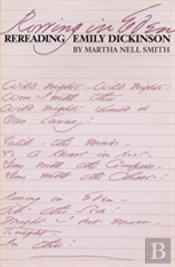 Rowing in Eden
REREADING EMILY DICKINSON
BY MARTHA NELL SMITH
Wild nights - Wild nights!
Were I with thee
Wild nights should be
Our luxury!
Futile - the winds -
To a Heart in port -
Done with the Compass -
Done with the Chart!
Rowing in Eden -
Ah - the Sea!
Might I but moor -
Tonight -
In thee!
B